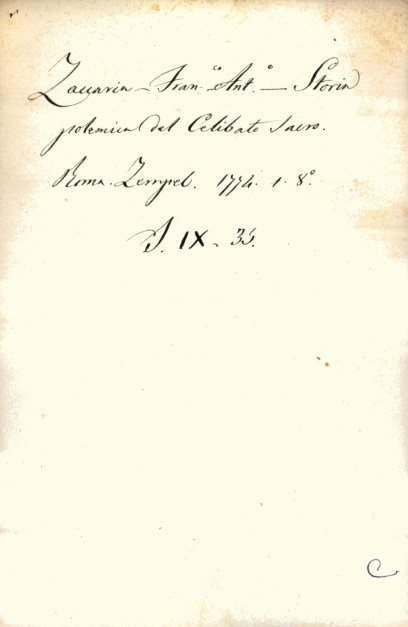 Zaccaria - Fran.co Ant.o — Storia
polemica del Celibato Sacro.
Roma. Zempel. 1774. 1. 8.o
S. IX. 35.
C